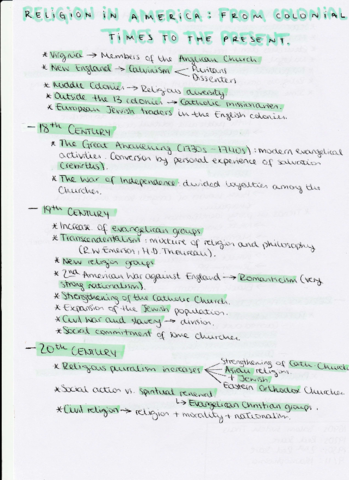 RELIGION IN AMERICA: FROM COLONIAL
TIMES TO THE PRESENT.
* Virginia → Members of the Anglican Church
* New England → Calvinism < Puritans
Dissenters
* Middle Colonies → Religious diversity
* Outside the 13 colonies → Catholic missionaries.
* European Jewish traders in the English colonies.
— 18th CENTURY
* The Great Awakening (1730s - 1740s): modern evangelical
activities. Conversion by personal experience of salvation
* The War of Independence divided loyalties among the
Churches.
— 19th CENTURY
* Increase of evangelican groups
* Transcendentalism: mixture of religion and philosophy
(R.W. Emerson, H.D. Thoreau).
* New religion groups
* 2nd American war against England → Romanticism (very
strong nationalism).
* Strengthening of the Catholic Church.
* Expansion of the Jewish population.
* Civil war and slavery → division.
* Social commitment of some churches.
— 20th CENTURY
* Religious pluralism increases < Strengthening of Catho Church
Asian religions
+ Jewish
Eastern Orthodox Churches
* Social action vs. spiritual renewal
↳ Evangelican Christian groups.
* Civil religion → religion + morality + nationalism.